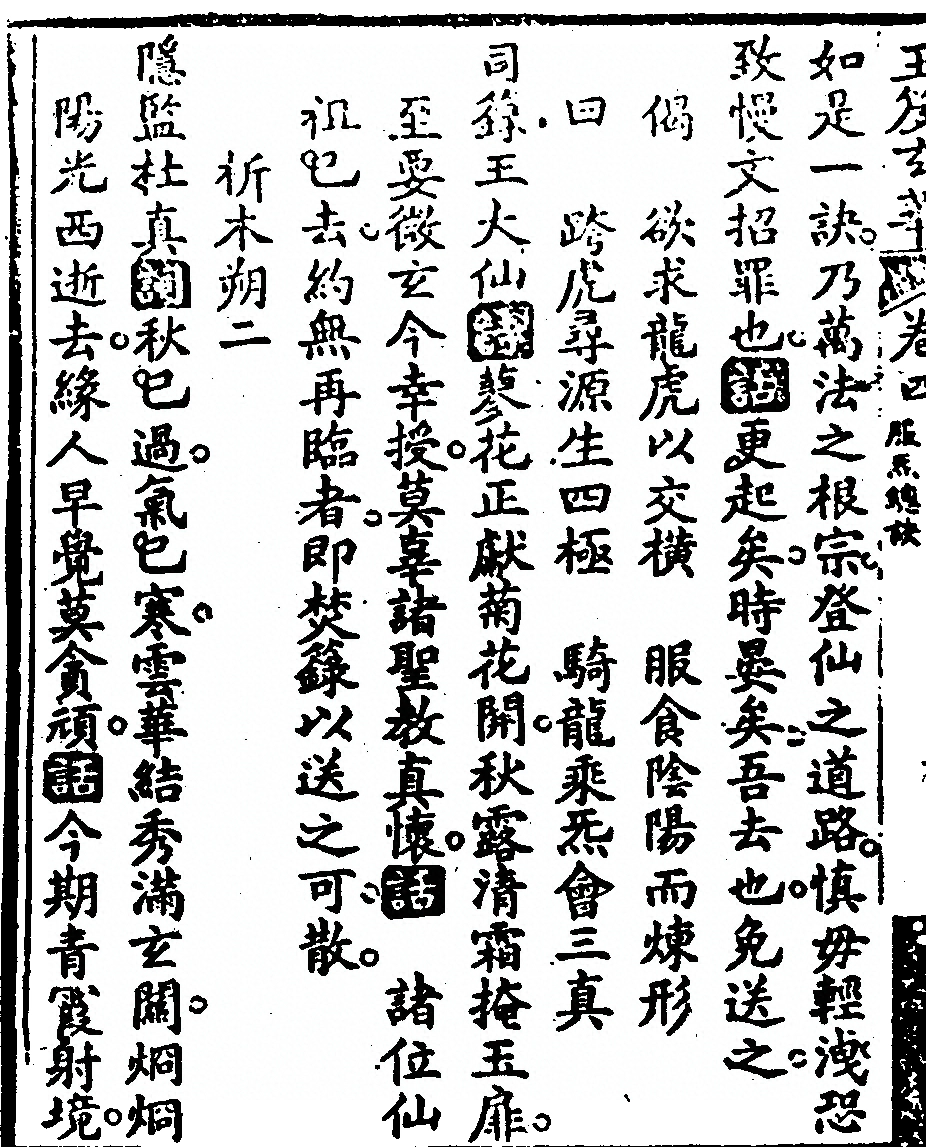 卷四 服炁總訣
如是一訣乃萬法之根宗登仙之道路慎毋輕洩恐
致慢文招罪也話更起矣時晏矣吾去也免送之
偈 欲求龍虎以交橫 服食陰陽而煉形
曰 跨虎尋源生四極 騎龍乘炁會三真
司錄王火仙 蓼花正獻菊花開秋露清霜掩玉扉
至要微玄今幸授莫辜諸聖教真懷話 諸位仙
祖已去約無再臨者即焚籙以送之可散
析木朔二
隱監杜真 秋已過氣已寒雲華結秀滿玄關烱烱
陽光西逝去緣人早覺莫貪頑話今期青霞射境